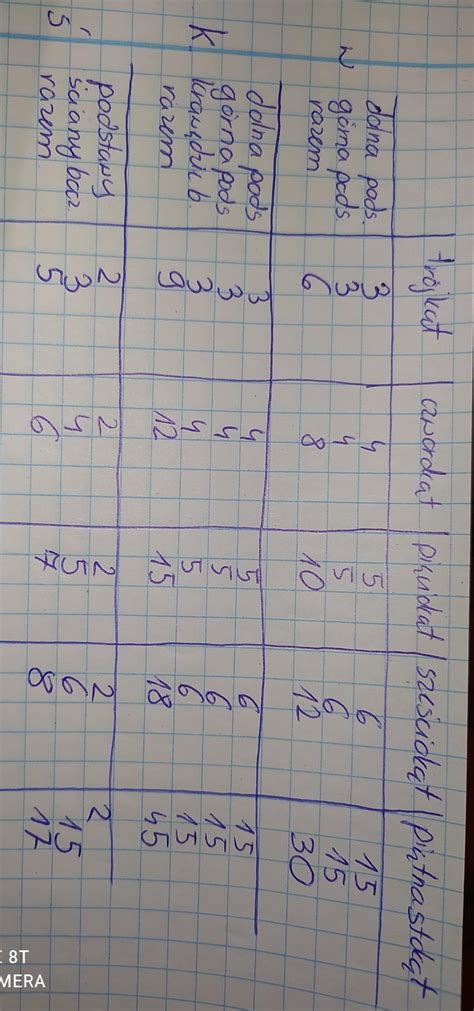 trójkąt czworokąt pięciokąt sześciokąt piętnastokąt
W dolna pods. 3 4 5 6 15
górna pods. 3 4 5 6 15
razem 6 8 10 12 30
K dolna pods. 3 4 5 6 15
górna pods 3 4 5 6 15
krawędzie b. 3 4 5 6 15
razem 9 12 15 18 45
Ś podstawy 2 2 2 2 2
ściany bocz. 3 4 5 6 15
razem 5 6 7 8 17
8T
MERA